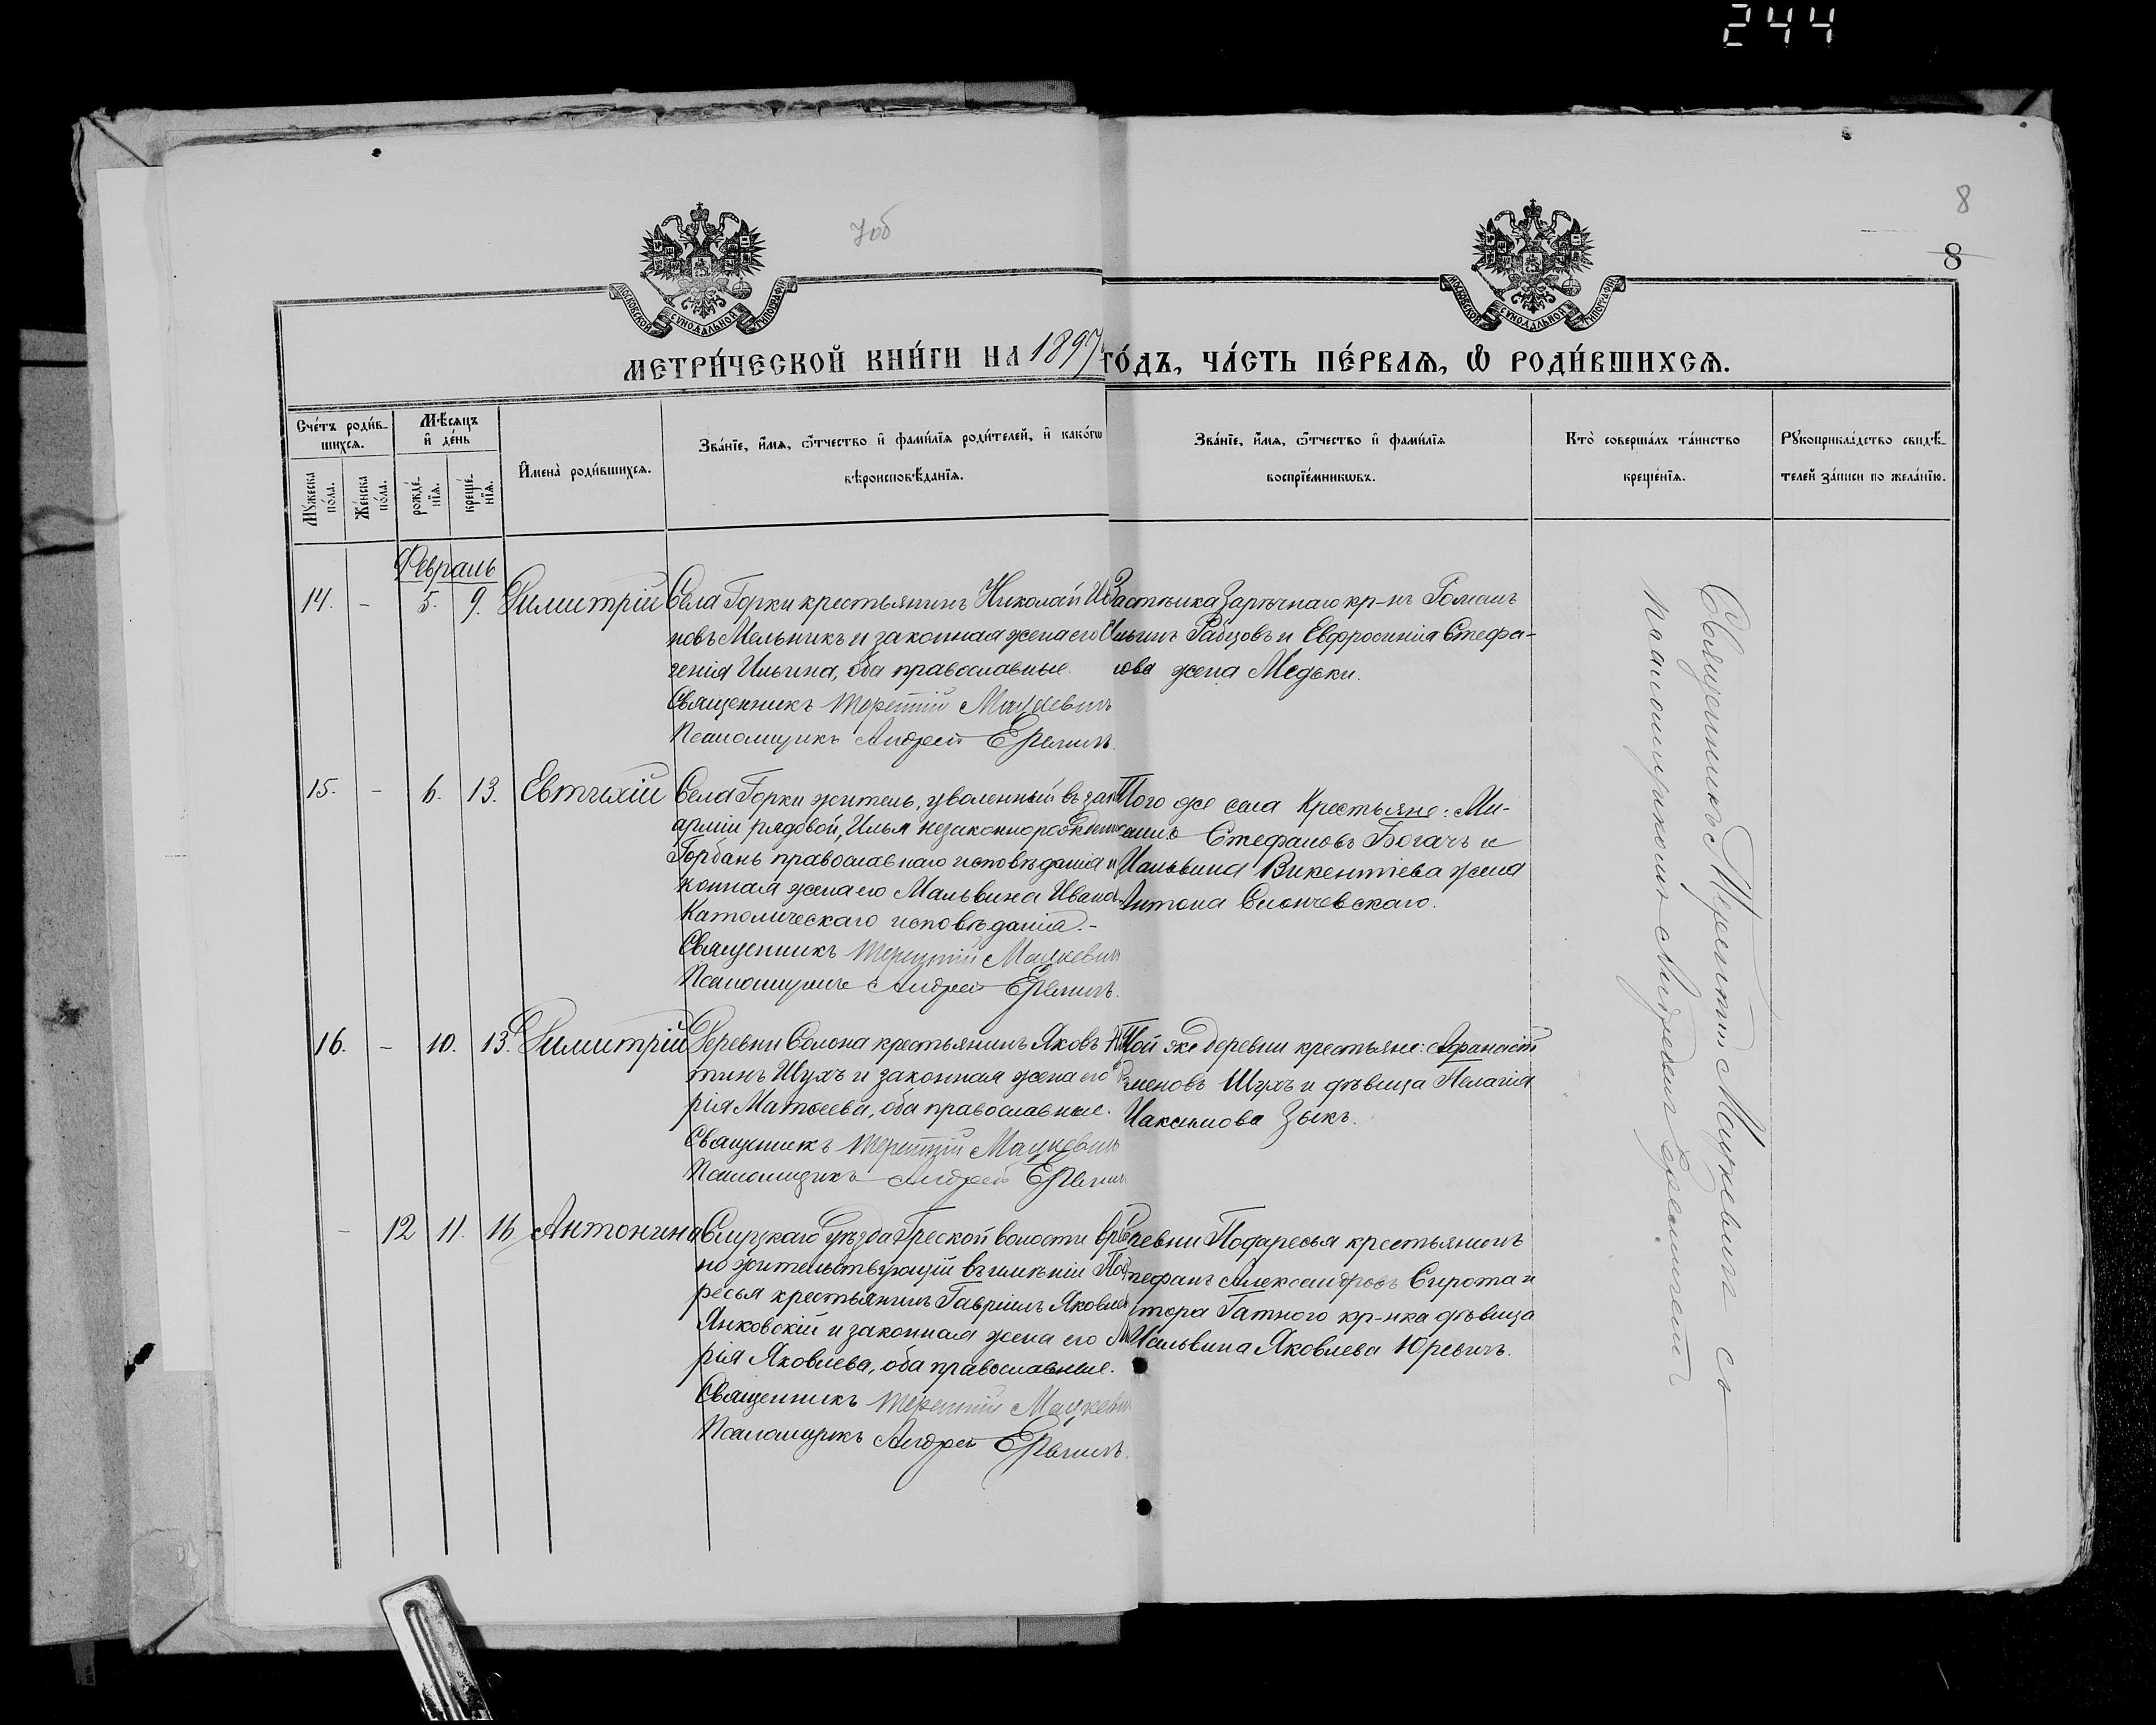 244
7об
8
8
МОСКОВСКОЙ СѴНОДАЛЬНОЙ ТИПОГРАФІИ
МОСКОВСКОЙ СѴНОДАЛЬНОЙ ТИПОГРАФІИ
МЕТРИ́ЧЕСКОЙ КНИ́ГИ НА 1897 ГО́ДЪ, ЧА́СТЬ ПЕ́РВАѦ, Ѡ҆ РОДИ́ВШИХСѦ.
Сче́тъ роди́в-
шихсѧ.
Мѣ́сѧцъ
и҆ де́нь
Мꙋ́жеска
по́ла.
Же́нска
по́ла.
рожде́-
нїѧ.
креще́-
нїѧ.
И҆мена̀ роди́вшихсѧ.
Зва́нїе, и҆́мѧ, ѻ҆́тчество и҆ фами́лїѧ роди́телей, и҆ како́гѡ
вѣроисповѣ́данїѧ.
Зва́нїе, и҆́мѧ, ѻ҆́тчество и҆ фами́лїѧ
воспрїе́мникѡвъ.
Кто̀ соверша́лъ та́инство
креще́нїѧ.
Рꙋкоприкла́дство свидѣ́-
телей за́писи по жела́нїю.
Февраль
14. - 5. 9. Димитрій
Села Горки крестьянинъ Николай Ив
новъ Мельникъ и законная жена его
генія Ильина, оба православные.
Священникъ Терентій Мацкевичъ
Псаломщикъ Андрей Еремичъ.
Застѣнка Зарѣчнаго кр-нъ Романъ
Рабцовъ и Евфросинія Стефа-
ова жена Медьки.
15. - 6. 13. Евтихій
Села Горки житель, уволенный въ зап
арміи рядовой, Илья незаконнорожден
Горбань православнаго исповѣданія и
конная жена его Мальвина Иванов
Католическаго исповѣданія.-
Священникъ Терентій Мацкевичъ
Псаломщикъ Андрей Еремичъ.
Того же села Крестьяне: Ми-
Стефановъ Богачъ и
Мальвина Викентіева жена
Антона
16. - 10. 13. Димитрій
Деревни Солона крестьянинъ Яковъ
тинъ Шухъ и законная жена его
рія Матѳеева, оба православные.
Священникъ Терентій Мацкевичъ
Псаломщикъ Андрей Еремичъ
Той же деревни крестьяне: Аѳанасій
меновъ Шухъ и дѣвица Пелагія
Максимова Зыкъ.
- 12 11. 16 Антонина
Слуцкаго уѣзда Греской волости вре
но жительствующій въ имѣніи Под
ресья крестьянинъ Гавріилъ Яковлев
Янковскій и законная жена его Ма
рья Яковлева, оба православные.
Священникъ Терентій Мацкевич
Псаломщикъ Андрей Еремичъ.
ревни Подаресья крестьянинъ
тефанъ Александровъ Сирота и
тора Гатного кр-нка дѣвица
Мальвина Яковлева Юревичъ.
Священникъ Терентій Мацкевичъ съ
псаломщикомъ Андреемъ Еремичемъ